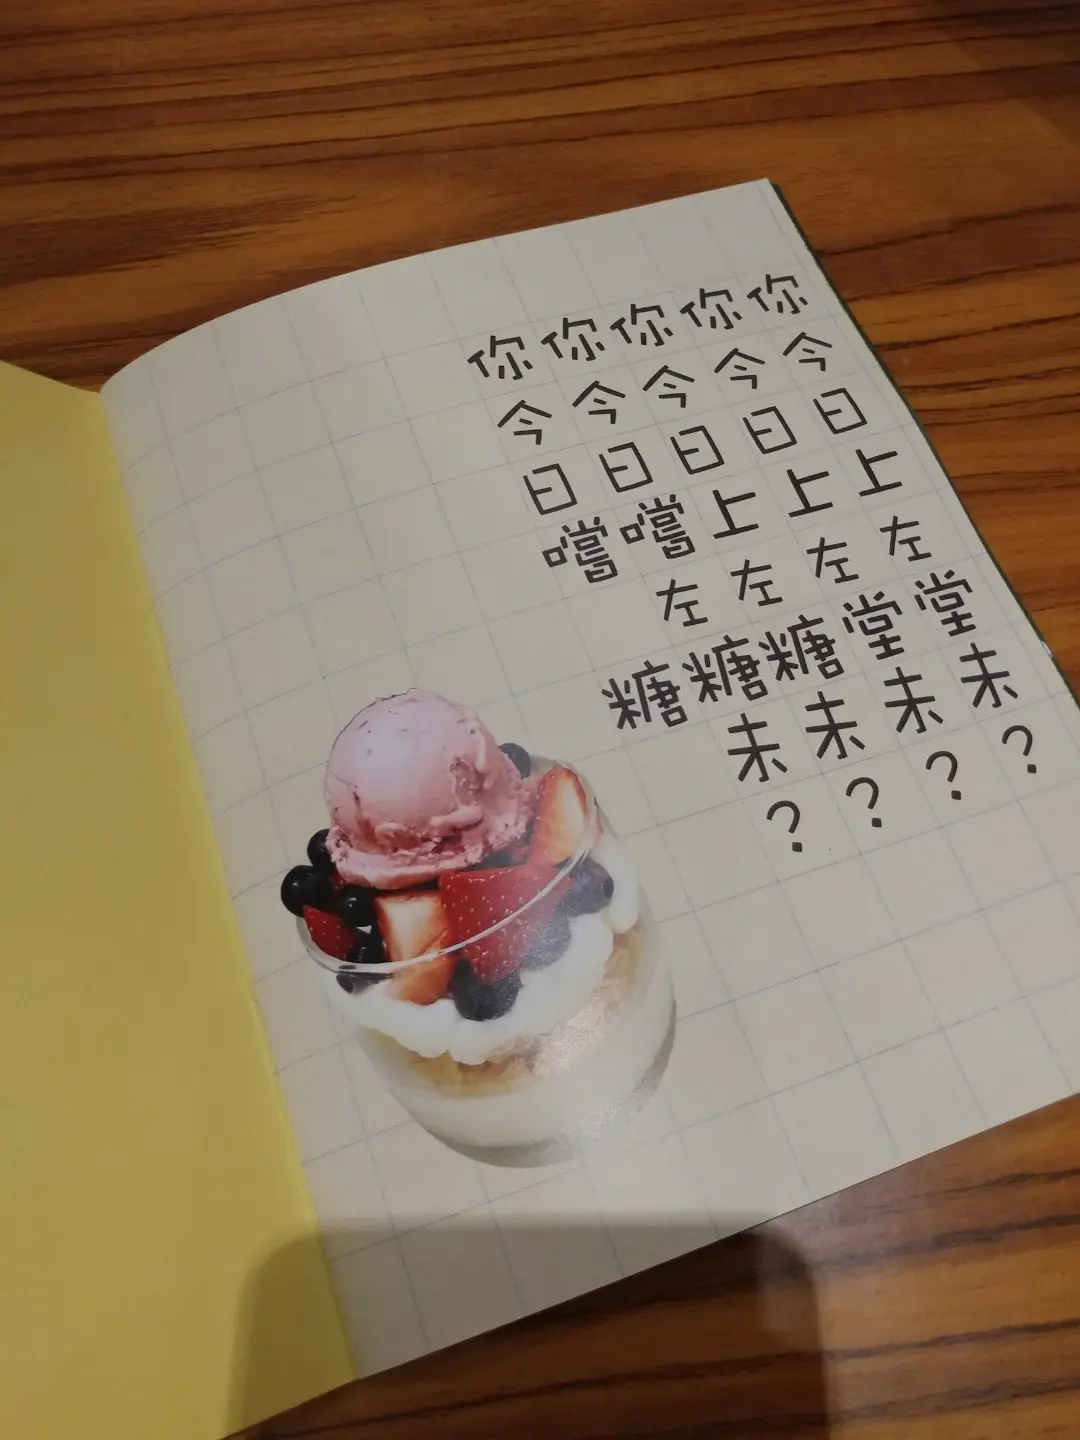 你今日上左堂未?
你今日上左堂未?
你今日上左糖未?
你今日嚐左糖未?
你今日嚐 糖